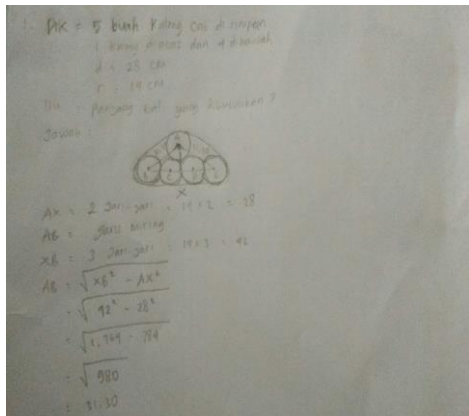 1. Dik = 5 buah kaleng cat disimpan
1 kaleng diatas dan 4 dibawah
d = 28 cm
r = 14 cm
Dit = panjang tali yang dibutuhkan ?
Jawab :
A
X
AX = 2 Jari-jari = 14 x 2 = 28
AB = garis miring
XB = 3 Jari-jari = 14 x 3 = 42
AB = √XB² - AX²
= √42² - 28²
= √1,764 - 784
= √980
= 31.30